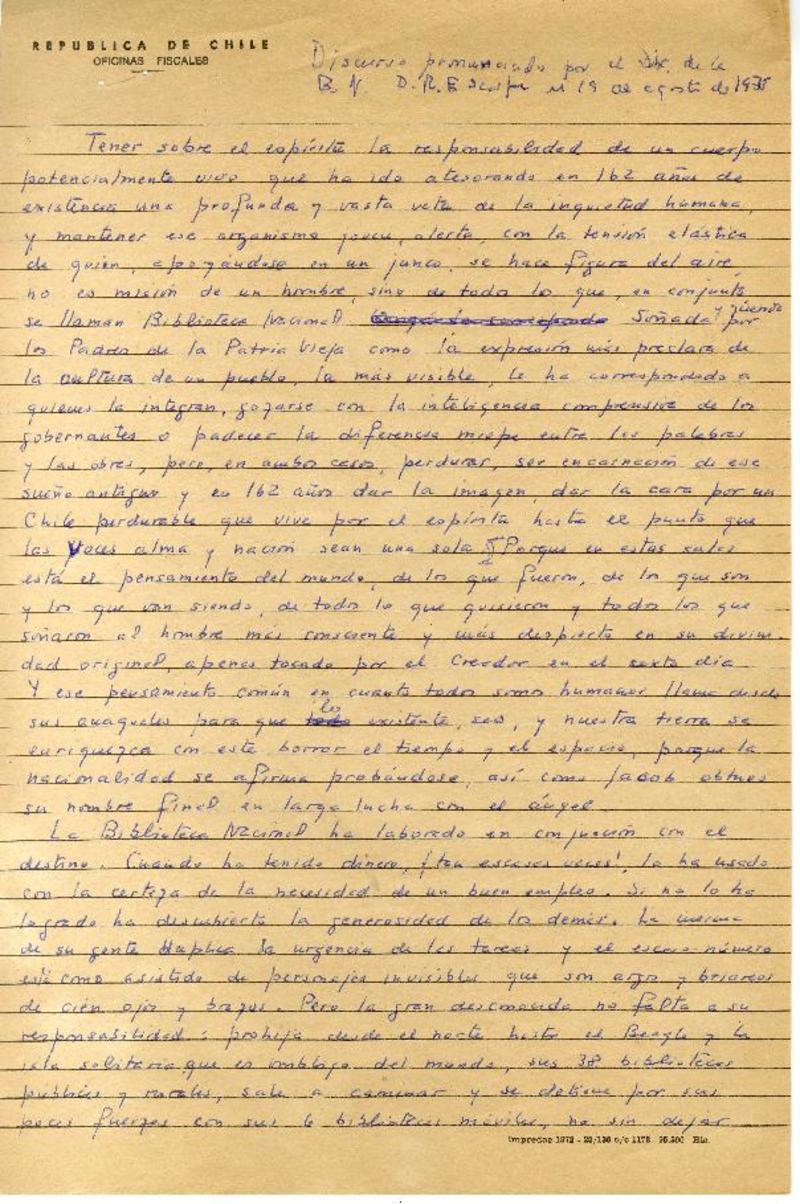 REPUBLICA DE CHILE
OFICINAS FISCALES
Discurso pronunciado por el Dir. de la
B. N. D. R. E Scarpa el 19 de agosto de 1975
Tener sobre el espíritu la responsabilidad de un cuerpo
potencialmente vivo que ha ido atesorando en 162 años de
existencia una profunda y vasta veta de la inquietud humana,
y mantener ese organismo joven, alerta, con la tensión elástica
de quien, apoyándose en un junco, se hace figura del aire,
no es misión de un hombre, sino de todo lo que, en conjunto
se llaman Biblioteca Nacional. Soñada y querida por
los Padres de la Patria Vieja como la expresión más preclara de
la cultura de un pueblo, la más visible, le ha correspondido a
quienes la integran, gozarse con la inteligencia comprensiva de los
gobernantes o padecer la diferencia miope entre las palabras
y las obras, pero, en ambos casos, perdurar, ser encarnación de ese
sueño antiguo y en 162 años dar la imagen, dar la cara por un
Chile perdurable que vive por el espíritu hasta el punto que
las voces alma y nación sean una sola. Porque en estas salas
está el pensamiento del mundo, de los que fueron, de los que son
y los que van siendo, de todo lo que quisieron y todos los que
soñaron al hombre más consciente y más despierto en su divini-
dad original, apenas tocado por el Creador en el sexto día.
Y ese pensamiento común en cuanto todos somos humanos llama desde
sus anaqueles para que lo existente, sea, y nuestra tierra se
enriquezca con este borrar el tiempo y el espacio, porque la
nacionalidad se afirma probándose, así como Jacob obtuvo
su nombre final en larga lucha con el ángel.
La Biblioteca Nacional ha laborado en conjunción con el
destino. Cuando ha tenido dinero, ¡tan escasas veces!, lo ha usado
con la certeza de la necesidad de un buen empleo. Si no lo ha
logrado ha descubierto la generosidad de los demás. La merma
de su gente suplica la urgencia de las tareas y el escaso número
está como asistido de personajes invisibles que son argos y briareos
de cien ojos y brazos. Pero la gran desconocida no falta a su
responsabilidad: prohija desde el norte hasta el Beagle y la
isla solitaria que es ombligo del mundo, sus 38 bibliotecas
públicas y rurales, sale a caminar y se detiene por sus
pocas fuerzas con sus 6 bibliotecas móviles, no sin dejar
Impredos 1972 - 23/136 o/c 1178 25.500 Bls.